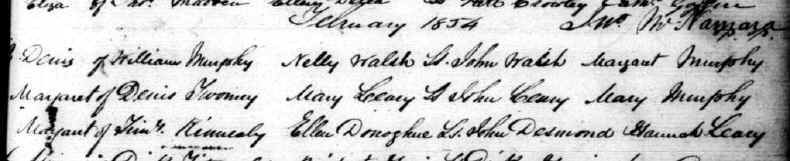 Eliza of Ths. Madden Ellen Dyer Ss. Patt Crowley
February 1854 Jno. McNamara
Denis of William Murphy Nelly Walsh Ss. John Walsh Margaret Murphy
Margaret of Denis Twomey Mary Leary Ss John Leary Mary Murphy
Margaret of Timy. Kinnealy Ellen Donoghue Ss. John Desmond Hannah Leary